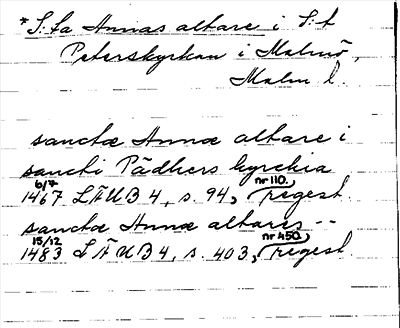 * S:ta Annas altare i S:t
Peterskyrkan i Malmö,
Malm l.
sanctæ Annæ altare i
sancti Pädhers kyrckia
6/7 nr 110.
1467 LÄUB 4, s. 94, regest.
sanctæ Annæ altares --
15/12 nr 450.
1483 LÄUB 4, s. 403, regest.